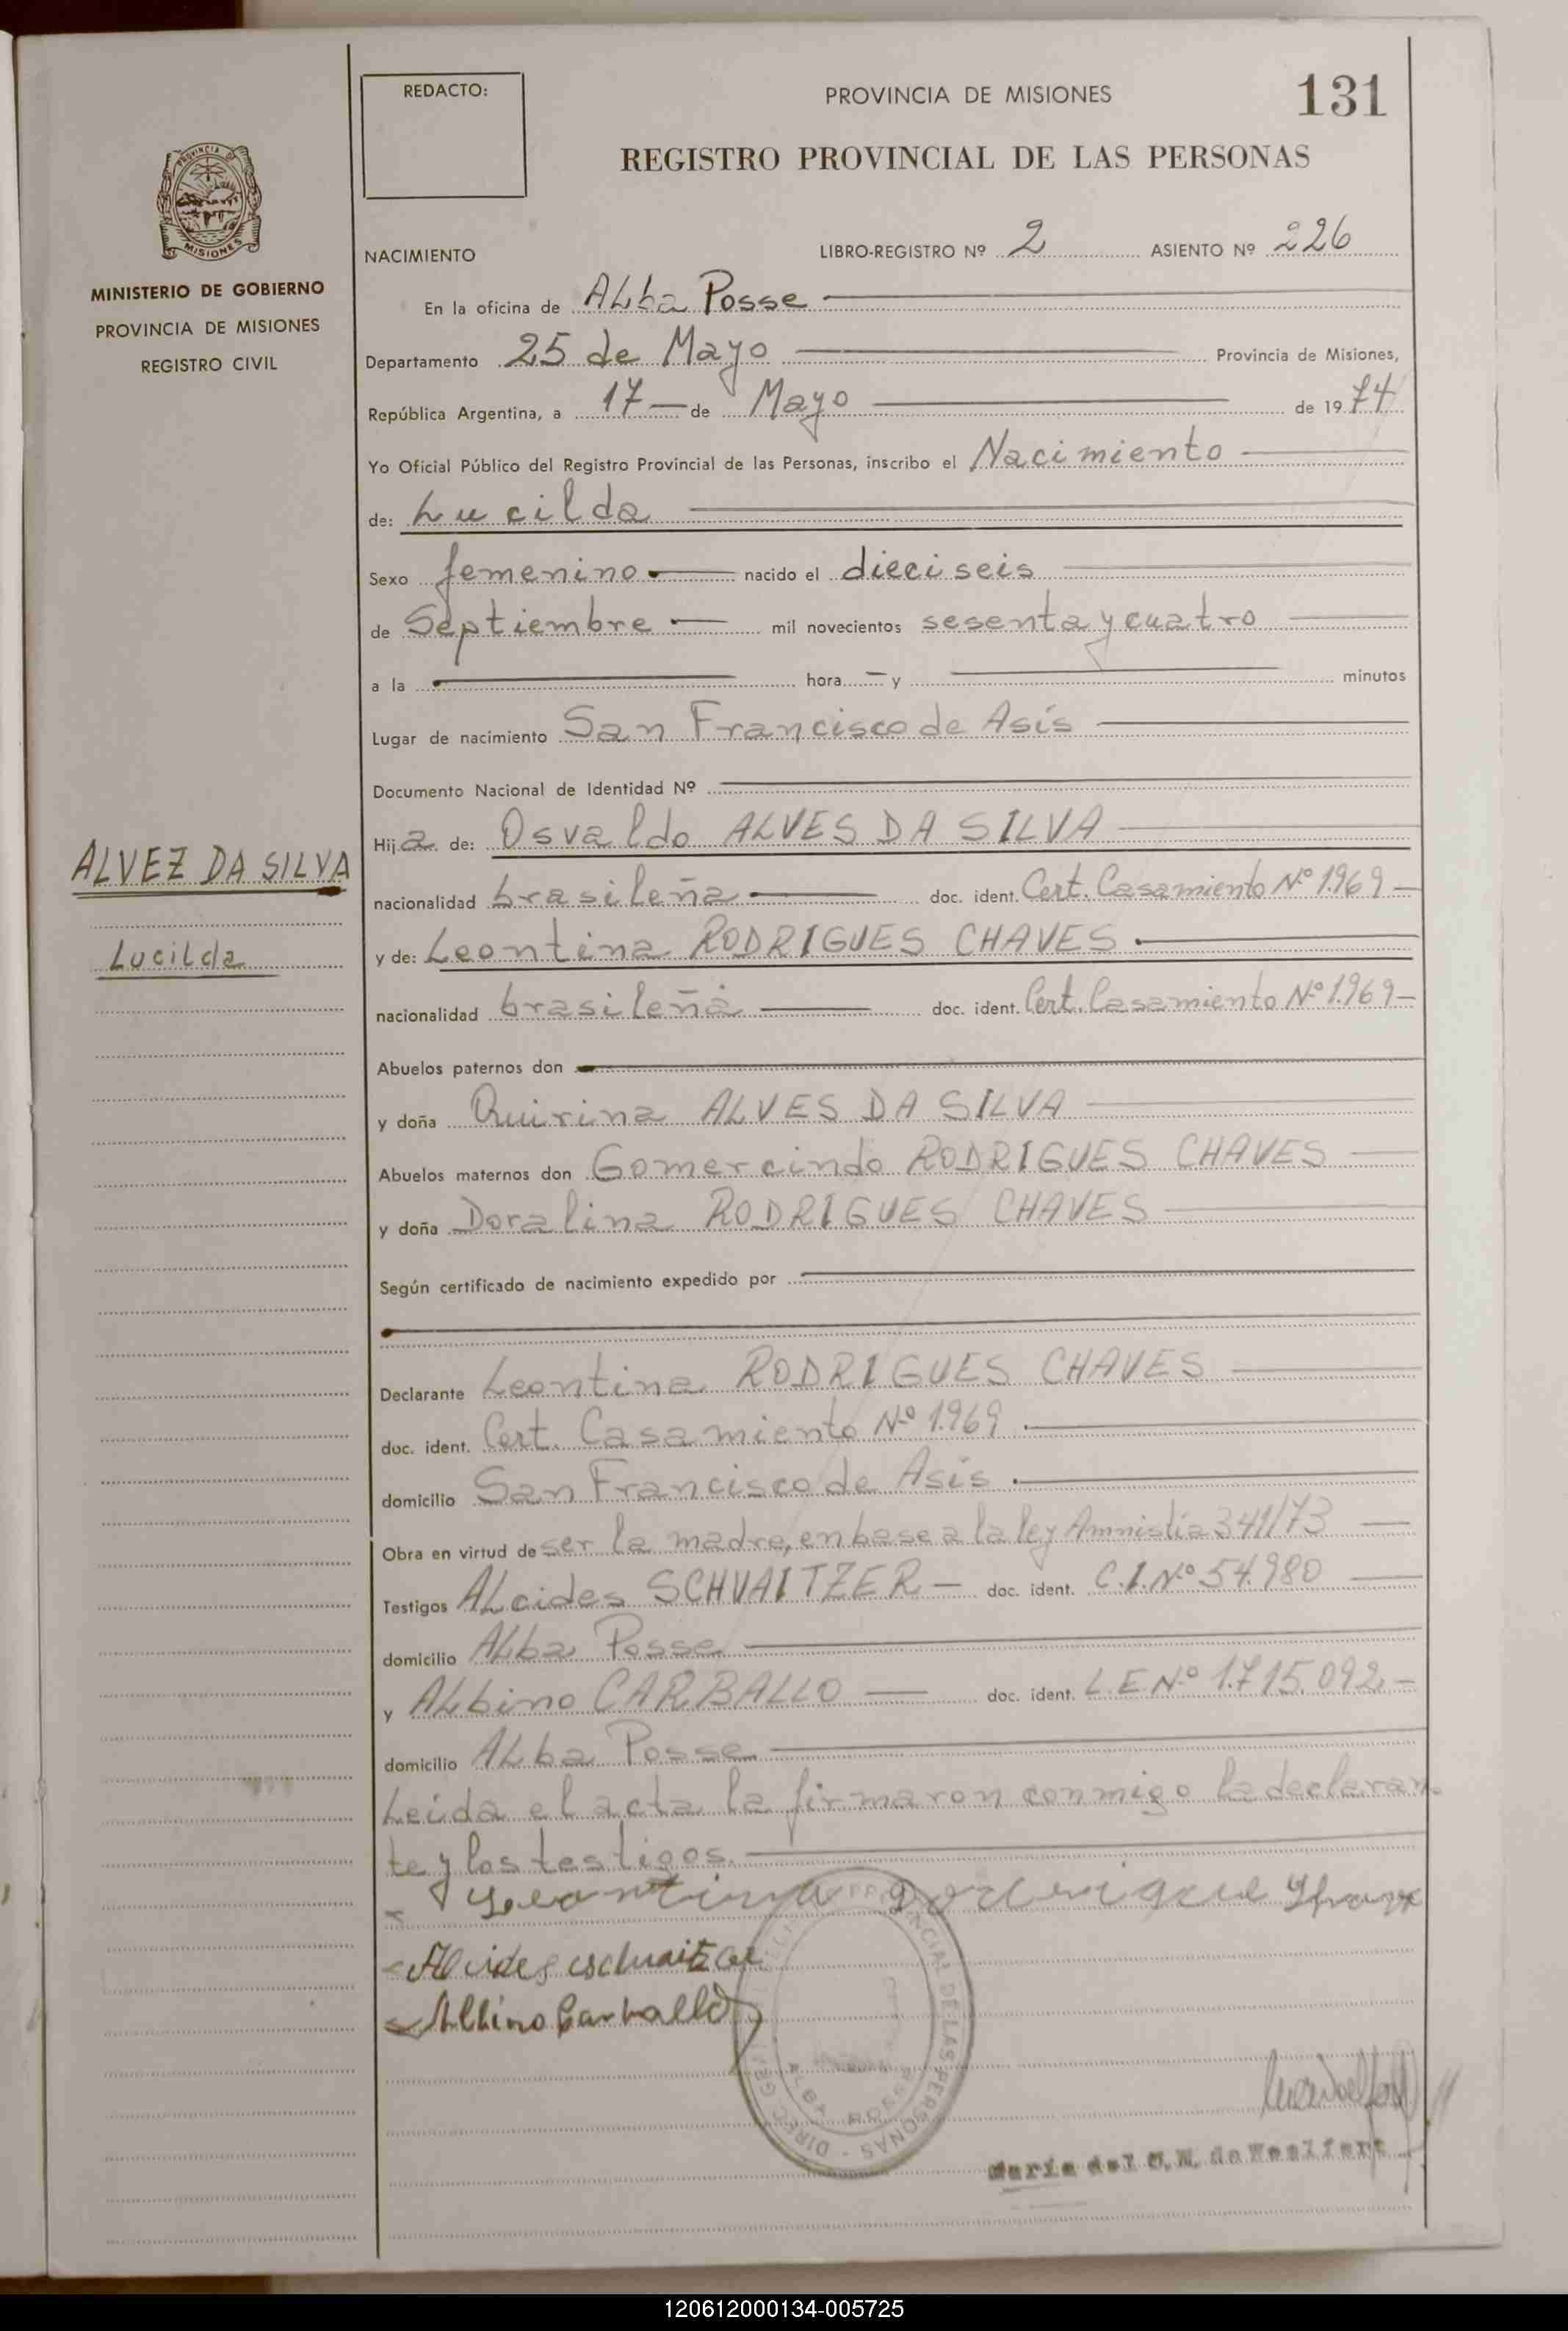 REDACTO:
PROVINCIA DE MISIONES
131
REGISTRO PROVINCIAL DE LAS PERSONAS
PROVINCIA DE
MISIONES
MINISTERIO DE GOBIERNO
PROVINCIA DE MISIONES
REGISTRO CIVIL
NACIMIENTO LIBRO-REGISTRO Nº 2 ASIENTO Nº 226
En la oficina de Alba Posse
Departamento 25 de Mayo Provincia de Misiones,
República Argentina, a 17 de Mayo de 1974
Yo Oficial Público del Registro Provincial de las Personas, inscribo el Nacimiento
de: Lucilda
Sexo femenino nacido el dieciseis
de Septiembre mil novecientos sesenta y cuatro
a la hora y minutos
Lugar de nacimiento San Francisco de Asís
Documento Nacional de Identidad Nº
Hija de: Osvaldo ALVES DA SILVA
ALVEZ DA SILVA
nacionalidad brasileña doc. ident. Cert. Casamiento Nº 1.969
y de: Leontina RODRIGUES CHAVES
Lucilda
nacionalidad brasileña doc. ident. Cert. Casamiento Nº 1.969
Abuelos paternos don
y doña Quirina ALVES DA SILVA
Abuelos maternos don Gomercindo RODRIGUES CHAVES
y doña Doralina RODRIGUES CHAVES
Según certificado de nacimiento expedido por
Declarante Leontina RODRIGUES CHAVES
doc. ident. Cert. Casamiento Nº 1.969
domicilio San Francisco de Asís
Obra en virtud de ser la madre, en base a la ley Amnistía 341/73
Testigos Alcides SCHVAITZER doc. ident. C.I. Nº 54.980
domicilio Alba Posse
y Albino CARBALLO doc. ident. L.E. Nº 1.715.092
domicilio Alba Posse
Leída el acta la firmaron conmigo la declaran
te y los testigos.
Leontina
Albino Carballo
PROVINCIAL DE LAS PERSONAS
ALBA POSSE
María del
120612000134-005725